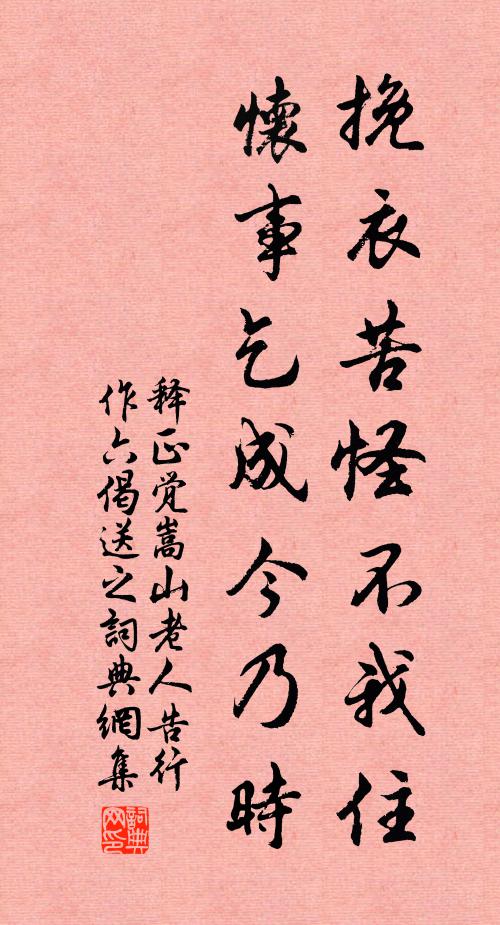 挽衣苦怪不我住
懷事乞成今乃時
释正觉嵩山老人告行
作六偈送之詞典網集
詞典网印